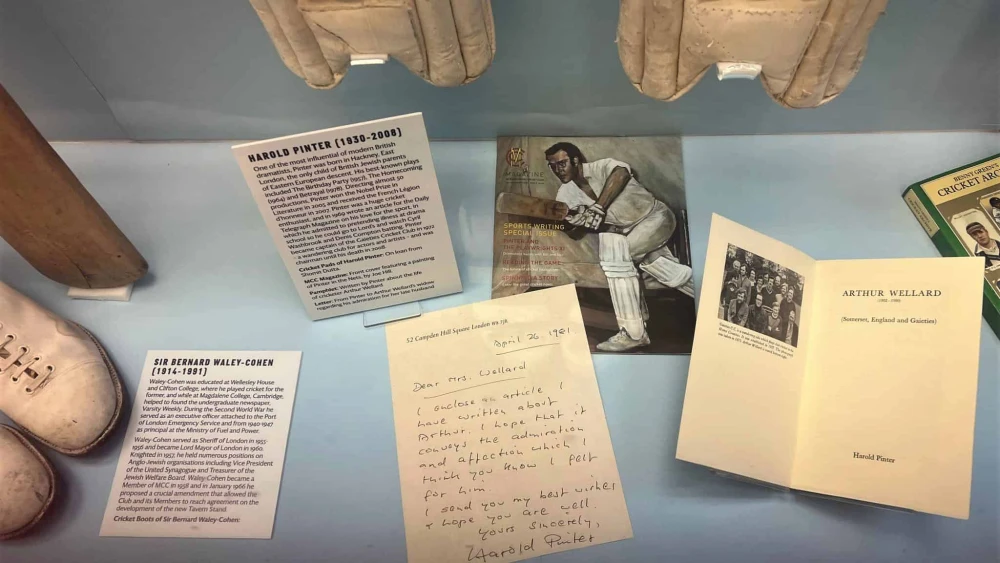 HAROLD PINTER (1930-2008)
One of the most influential of modern British
dramatists, Pinter was born in Hackney, East
London, the only child of British Jewish parents
of Eastern European descent. His best-known plays
included The Birthday Party (1957), The Homecoming
(1964) and Betrayal (1978). Directing almost 50
productions, Pinter won the Nobel Prize in
Literature in 2005 and received the French Légion
d'honneur in 2007. Pinter was a huge cricket
enthusiast, and in 1969 wrote an article for the Daily
Telegraph Magazine on his love for the sport, in
which he admitted to pretending illness at drama
school so he could go to Lord's and watch Cyril
Washbrook and Denis Compton batting. Pinter
became captain of the Gaieties Cricket Club in 1972
- a wandering club for actors and artists - and was
chairman until his death in 2008.
Cricket Pads of Harold Pinter: On loan from
Shomit Dutta.
MCC Magazine: Front cover featuring a painting
of Pinter in the Nets, by Joe Hill
Pamphlet: Written by Pinter about the life
of cricketer Arthur Wellard
Letter: From Pinter to Arthur Wellard's widow
regarding his admiration for her late husband
SIR BERNARD WALEY-COHEN
(1914-1991)
Waley-Cohen was educated at Wellesley House
and Clifton College, where he played cricket for the
former, and while at Magdalene College, Cambridge,
helped to found the undergraduate newspaper,
Varsity Weekly. During the Second World War he
served as an executive officer attached to the Port
of London Emergency Service and from 1940-1947
as principal at the Ministry of Fuel and Power.
Waley-Cohen served as Sheriff of London in 1955-
1956 and became Lord Mayor of London in 1960.
Knighted in 1957, he held numerous positions on
Anglo-Jewish organisations including Vice President
of the United Synagogue and Treasurer of the
Jewish Welfare Board. Waley-Cohen became a
Member of MCC in 1958 and in January 1966 he
proposed a crucial amendment that allowed the
Club and its Members to reach agreement on the
development of the new Tavern Stand.
Cricket Boots of Sir Bernard Waley-Cohen:
MAGAZINE
SPORTS WRITING
SPECIAL ISSUE
PINTER AND
THE PLAYWRIGHTS XI
THE GAME
52 Campden Hill Square London W8 7JR
April 26. 1981
Dear Mrs. Wellard
I enclose an article I
have written about
Arthur. I hope that it
conveys the admiration
and affection which I
think you know I felt
for him.
I send you my best wishes
& hope you are well.
Yours sincerely,
Harold Pinter
ARTHUR WELLARD
(Somerset, England and Gaieties)
Harold Pinter
BENNY GREEN'S
CRICKET ARC